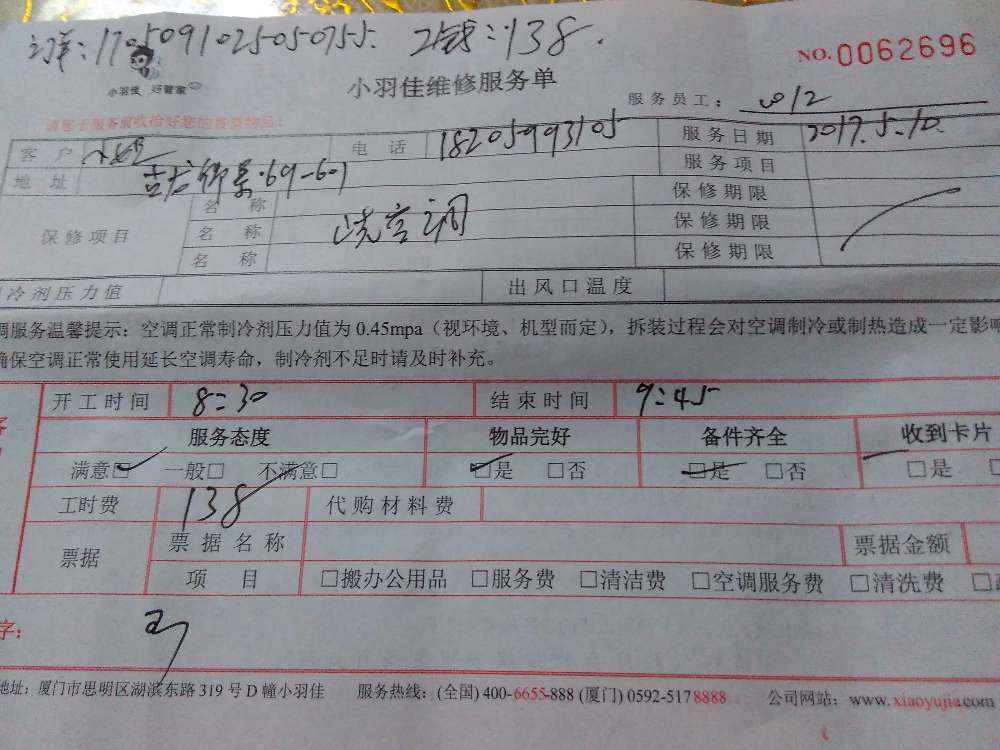 订单：170509102505075 5. 工钱：138.
NO.0062696
小羽佳 好管家
小羽佳维修服务单
服务员工：
请您于服务前收拾好您的贵重物品！
客 户 电 话 18205993105 服务日期 2017.5.10.
地 址 御景.69-601 服务项目
保修项目 名 称 保修期限
名 称 洗空调 保修期限
名 称 保修期限
冷剂压力值 出风口温度
调服务温馨提示：空调正常制冷剂压力值为 0.45mpa（视环境、机型而定），拆装过程会对空调制冷或制热造成一定影响
确保空调正常使用延长空调寿命，制冷剂不足时请及时补充。
开工时间 8:30 结束时间 9:45
服务态度 物品完好 备件齐全 收到卡片
满意□ 一般□ 不满意□ □是 □否 □是 □否 □是
工时费 138 代购材料费
票据 票据名称 票据金额
项 目 □搬办公用品 □服务费 □清洁费 □空调服务费 □清洗费
字：
地址：厦门市思明区湖滨东路 319 号 D 幢小羽佳 服务热线：(全国) 400-6655-888 (厦门) 0592-5178888 公司网站：www.xiaoyujia.com